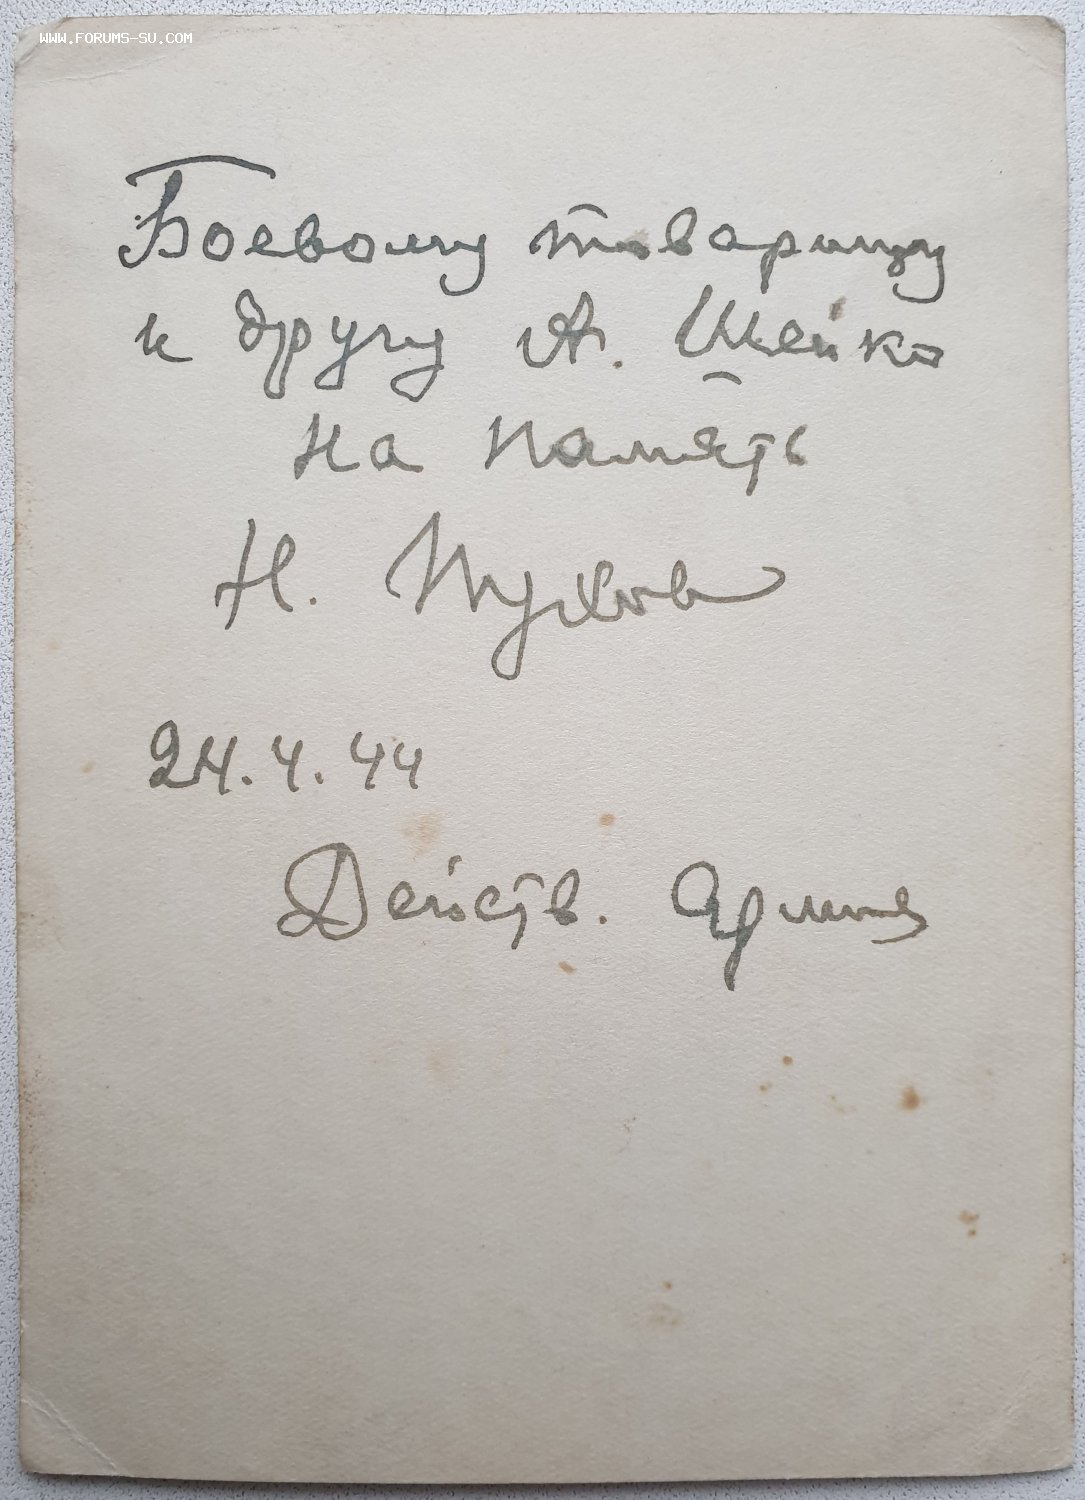 WWW.FORUMS-SU.COM
Боевому товарищу
и другу А. Шейко
на память
Н. Пухов
24.4.44
Действ. Армия